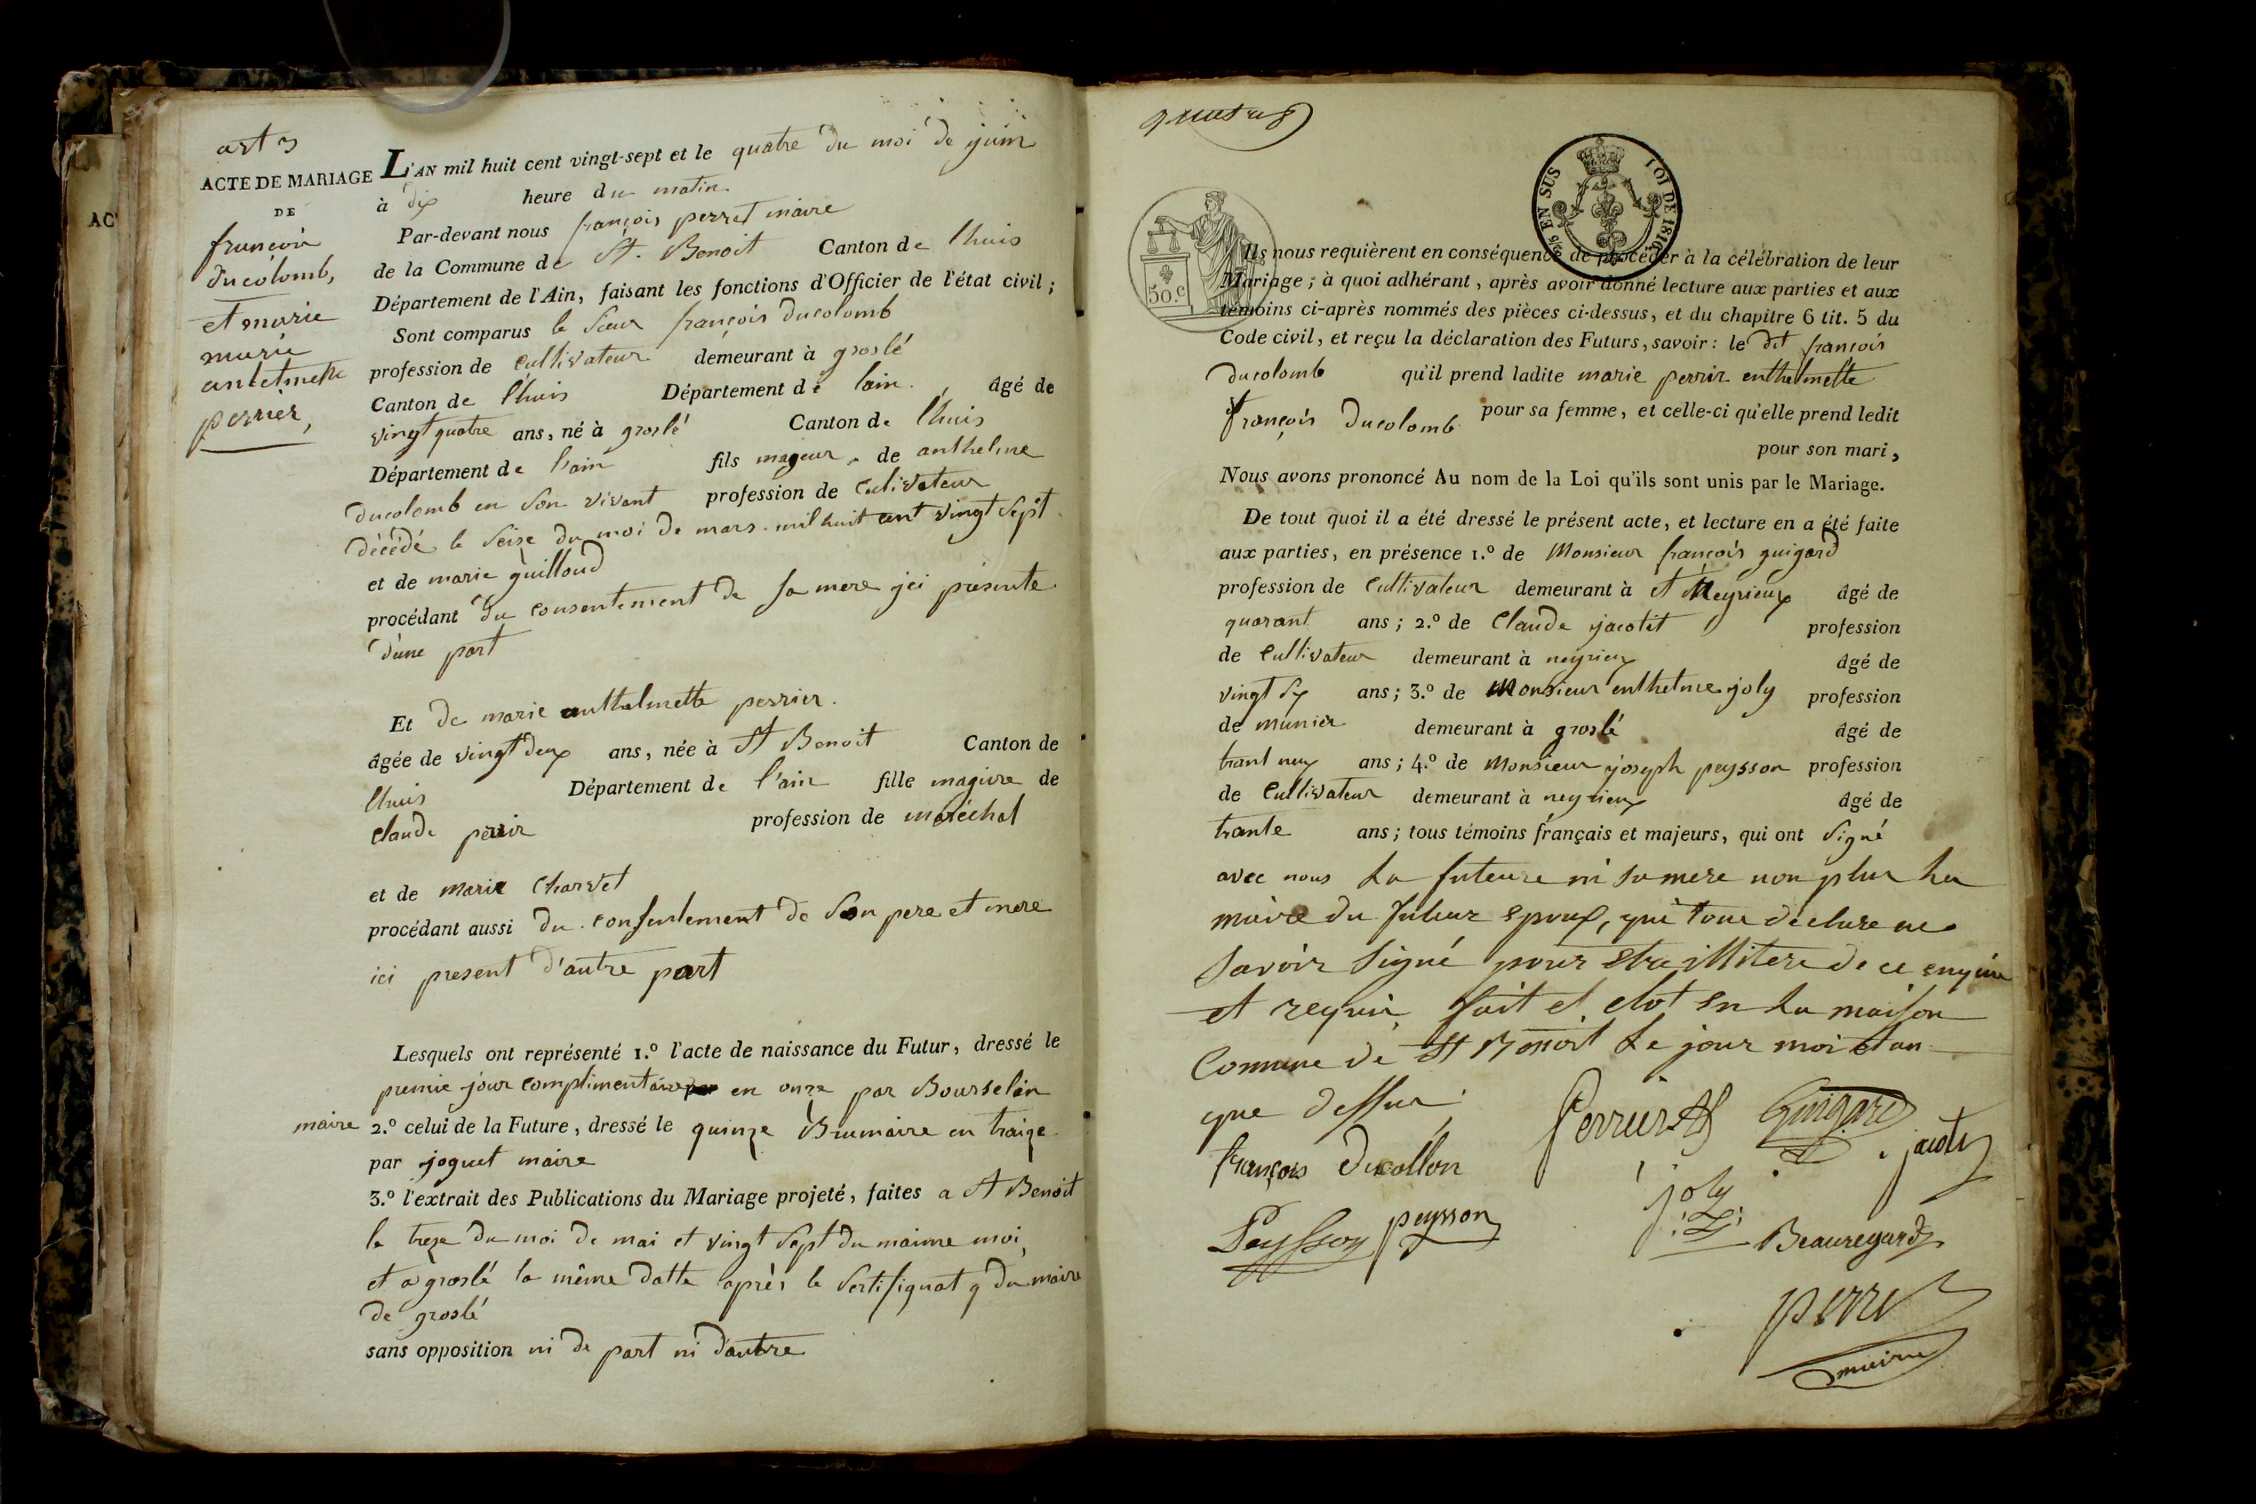 art 3
ACTE DE MARIAGE
DE
francoin
ducolomb,
et marie
marie
antelmette
perrier,
L'AN mil huit cent vingt-sept et le quatre du moi de juin
à dix heure du matin
Par-devant nous françois perret maire
de la Commune de St. Benoit Canton de lhuis
Département de l'Ain, faisant les fonctions d'Officier de l'état civil ;
Sont comparus le Sieur françois Ducolomb
profession de Cultivateur demeurant à groslé
Canton de l'huis Département de lain. , âgé de
vingt quatre ans, né à groslé Canton de l'huis
Département de l'ain fils mageur de anthelme
Ducolomb en son vivant profession de Cultivateur
décédé le Seise du moi de mars mil huit cent vingt Sept
et de marie guilloud
procédant du consentement de sa mere jci présente
d'une part
Et de marie anthelmette perrier.
âgée de vingt deux ans, née à St Benoit Canton de
lhuis Département de l'ain fille magiure de
Claude perrir profession de maréchal
et de marie Charvet
procédant aussi du consentement de Son pere et mere
ici present d'autre part
Lesquels ont représenté 1.º l'acte de naissance du Futur, dressé le
premie jour complimentaire en onze par Bourselin
maire 2.º celui de la Future, dressé le quinze Brumaire en traize
par joguet maire
3.º l'extrait des Publications du Mariage projeté, faites a St Benoit
le treze du moi de mai et vingt Sept du maime moi
et a groslé la même datte après le Sertifiquat q du maire
de groslé
sans opposition ni de part ni d'autre
50.c
EN SUS
LOI DE 1816
Ils nous requièrent en conséquence de procéder à la célébration de leur
Mariage ; à quoi adhérant, après avoir donné lecture aux parties et aux
témoins ci-après nommés des pièces ci-dessus, et du chapitre 6 tit. 5 du
Code civil, et reçu la déclaration des Futurs, savoir : le dit françois
ducolomb qu'il prend ladite marie perrir enthelmette
pour sa femme, et celle-ci qu'elle prend ledit
françois Ducolomb pour son mari,
Nous avons prononcé Au nom de la Loi qu'ils sont unis par le Mariage.
De tout quoi il a été dressé le présent acte, et lecture en a été faite
aux parties, en présence 1.º de Monsieur françois guigard
profession de Cultivateur demeurant à et Neyrieux âgé de
quarant ans ; 2.º de Claude jacotit profession
de Cultivateur demeurant à neyrieux âgé de
vingt Sy ans ; 3.º de Monsieur enthelme joly profession
de munier demeurant à groslé âgé de
trant neux ans ; 4.º de Monsieur joseph peysson profession
de Cultivateur demeurant à neyrieux âgé de
trante ans ; tous témoins français et majeurs, qui ont Signé
avec nous La futeure ni sa mere non plus La
maire du futeur epoux, qui tous declare ne
Savoir Signé pour etre illitere de ce enquir
et requir fait et clot en La maison
Commune de St Benoit Le jour moi et an
que dessus
Perrier Guigard jacoti
François Ducollon
joly
Peysson peysson Beauregard
perret
maire